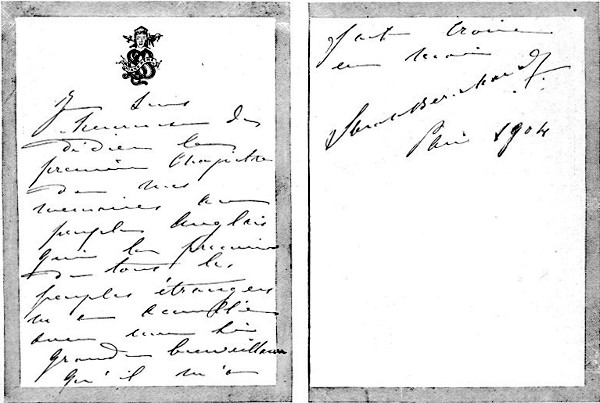 Je suis
heureuse de
dédier le
premier chapitre
de mes
mémoires au
peuple Anglais
qui le premier
de tous les
peuples étrangers
m'a accueillie
avec une si
grande bienveillance
qu'il m'a
fait croire
en moi
Sarah Bernhardt
Paris 1904